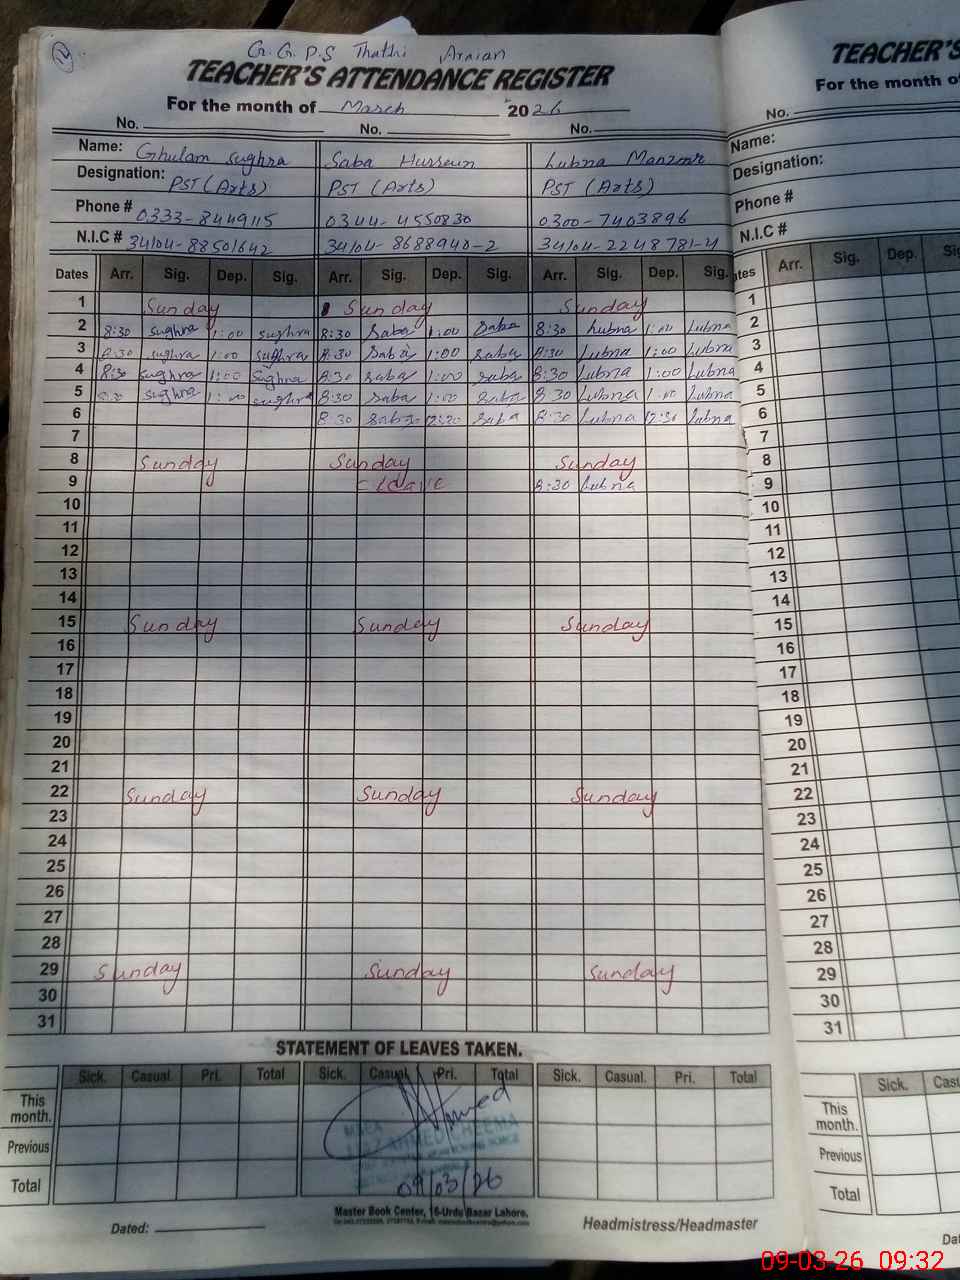 G. G. P.S Thathi Araian
TEACHER'S ATTENDANCE REGISTER
For the month of March 2026
No. No. No.
Name: Ghulam Sughra Saba Hussain Lubna Manzoor
Designation: PST (Arts) PST (Arts) PST (Arts)
Phone # 0333-8449115 0344-4550830 0300-7403896
N.I.C # 34104-88501642 34104-8688940-2 34104-2248781-4
Dates Arr. Sig. Dep. Sig. Arr. Sig. Dep. Sig. Arr. Sig. Dep. Sig.
1 Sunday Sunday Sunday
2 8:30 sughra 1:00 sughra 8:30 Saba 1:00 Saba 8:30 Lubna 1:00 Lubna
3 8:30 sughra 1:00 sughra 8:30 Saba 1:00 Saba 8:30 Lubna 1:00 Lubna
4 8:30 sughra 1:00 sughra 8:30 Saba 1:00 Saba 8:30 Lubna 1:00 Lubna
5 8:30 sughra 1:00 sughra 8:30 Saba 1:00 Saba 8:30 Lubna 1:00 Lubna
6 8:30 Saba 12:30 Saba 8:30 Lubna 12:30 Lubna
7
8 Sunday Sunday Sunday
9 8:30 Lubna
10
11
12
13
14
15 Sunday Sunday Sunday
16
17
18
19
20
21
22 Sunday Sunday Sunday
23
24
25
26
27
28
29 Sunday Sunday Sunday
30
31
STATEMENT OF LEAVES TAKEN.
Sick. Casual. Pri. Total Sick. Casual. Pri. Total Sick. Casual. Pri. Total
This month.
Previous
Total
AHMED CHEEMA
09/03/26
Master Book Center, 16-Urdu Bazar Lahore.
Dated: Headmistress/Headmaster
TEACHER'S
For the month of
No.
Name:
Designation:
Phone #
N.I.C #
ates Arr. Sig. Dep. Sig
1
2
3
4
5
6
7
8
9
10
11
12
13
14
15
16
17
18
19
20
21
22
23
24
25
26
27
28
29
30
31
Sick. Cas
This month.
Previous
Total
Dat
09-03-26 09:32